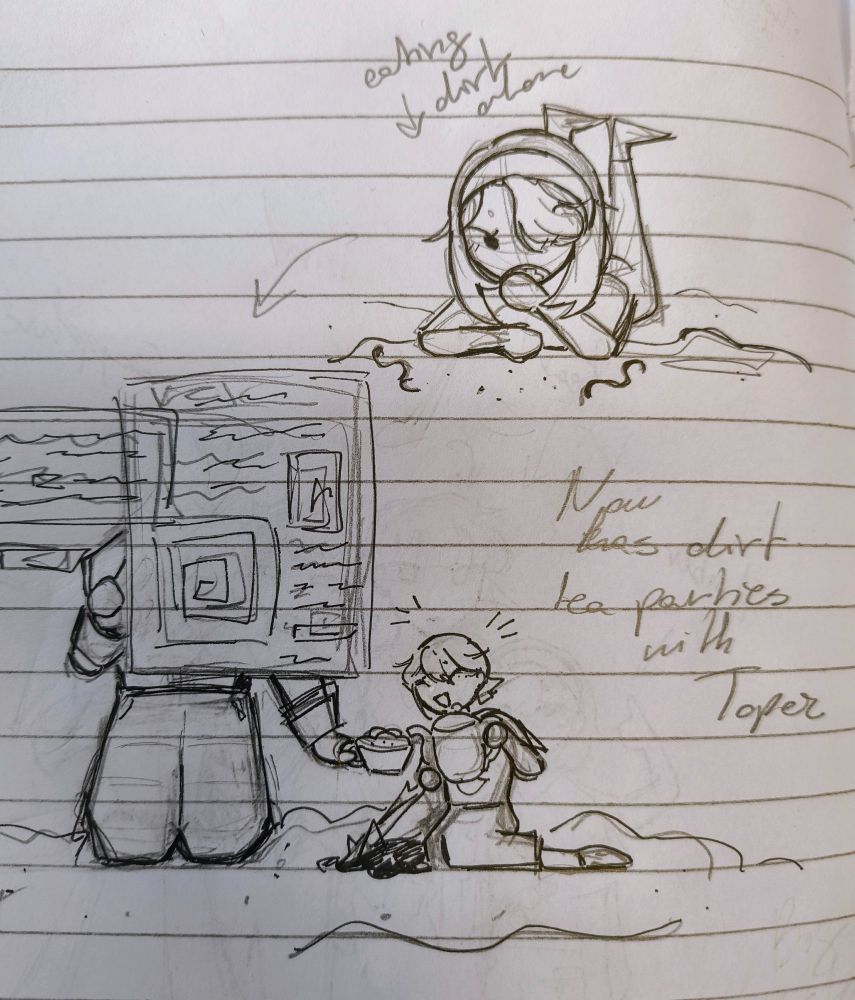 eating
dirt
alone
Now
has dirt
tea parties
with
Toper